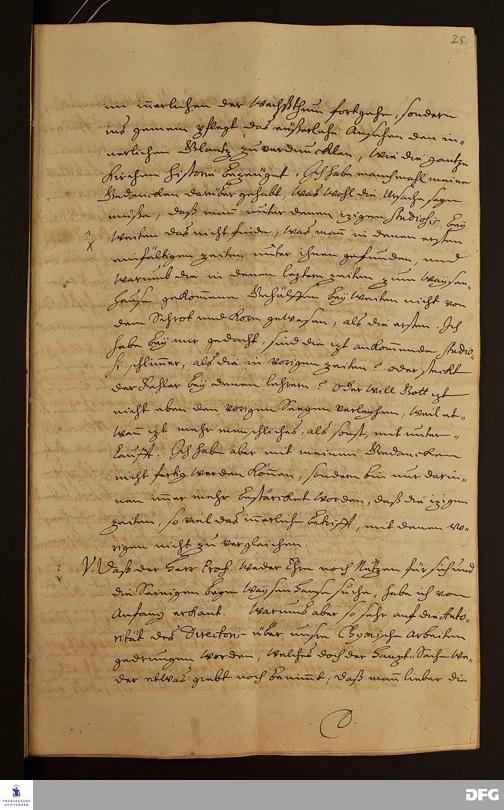 25.
im innerlichen der Wachsthum fortgehe, sondern
ins gemein pflegt das eüßerliche Ansehen den in-
nerlichen Glantz zu verdunckeln, wie die gantze
Kirchen Historie bezeuget. Ich habe manchmahl meine
Gedancken darüber gehabt, was wohl die Ursache seyn
müße, daß man unter denen itzigen Studiosis bey
weiten das nicht finde, was man in denen ersten
einfältigen Zeiten unter ihnen gefunden, und
warumb die in denen letztern Zeiten zum Waysen-
hause gekommene Gehülffen bey weiten nicht von
dem Schrot und Korn gewesen, als die ersten. Ich
habe bey mir gedacht, sind die itzt ankommende Studio-
si schlimmer, als die in vorigen Zeiten? oder steckt
der Fehler bey denen Lehrern? Oder will Gott itzt
nicht eben den vorigen Seegen verleyhen, weil et-
wan itzt mehr menschliches, als sonst, mit unter-
laufft. Ich habe aber mit meinen Gedancken
nicht fertig werden können, sondern bin nur darin-
nen immer mehr bestärcket worden, daß die itzigen
Zeiten, so viel das innerliche betrifft, mit denen vo-
rigen nicht zu vergleichen.
V. Daß der Herr Prof. weder Ehre noch Nutzen für sich und
die Seinigen beym Waysenhause suche, habe ich von
Anfang erkant. Warumb aber so sehr auf die Auto-
rität des Directoris über unsre Chymische Arbeiten
gedrungen worden, welches doch der Haupt-Sache we-
der etwas giebt noch benimmt; daß man lieber die
FRANCKESCHE STIFTUNGEN
DFG